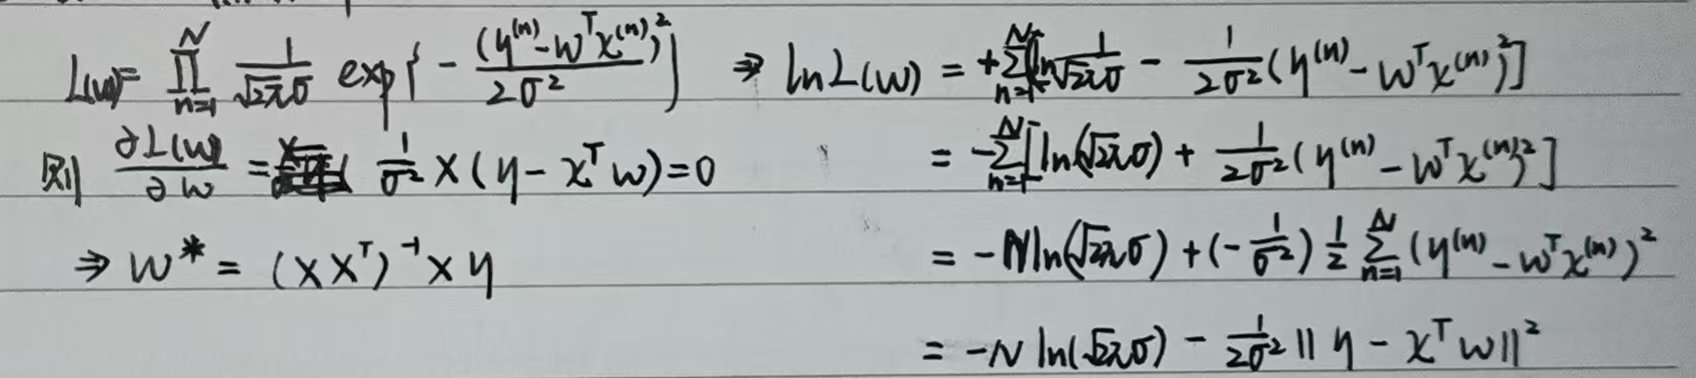 L(w)= ∏_{n=1}^{N} \frac{1}{\sqrt{2π}σ} exp{ - \frac{(y^{(n)}-w^T x^{(n)})^2}{2σ^2} } ⇒ ln L(w) = +∑_{n=1}^{N}[ln \frac{1}{\sqrt{2π}σ} - \frac{1}{2σ^2}(y^{(n)} - w^T x^{(n)})^2]
= -∑_{n=1}^{N}[ln(\sqrt{2π}σ) + \frac{1}{2σ^2}(y^{(n)} - w^T x^{(n)})^2]
= -N ln(\sqrt{2π}σ) + (-\frac{1}{σ^2}) \frac{1}{2} ∑_{n=1}^{N} (y^{(n)} - w^T x^{(n)})^2
= -N ln(\sqrt{2π}σ) - \frac{1}{2σ^2} ‖y - x^T w‖^2
则 \frac{∂L(w)}{∂w} = \frac{1}{σ^2} X(y - x^T w)=0
⇒ w* = (XX^T)^{-1} X y